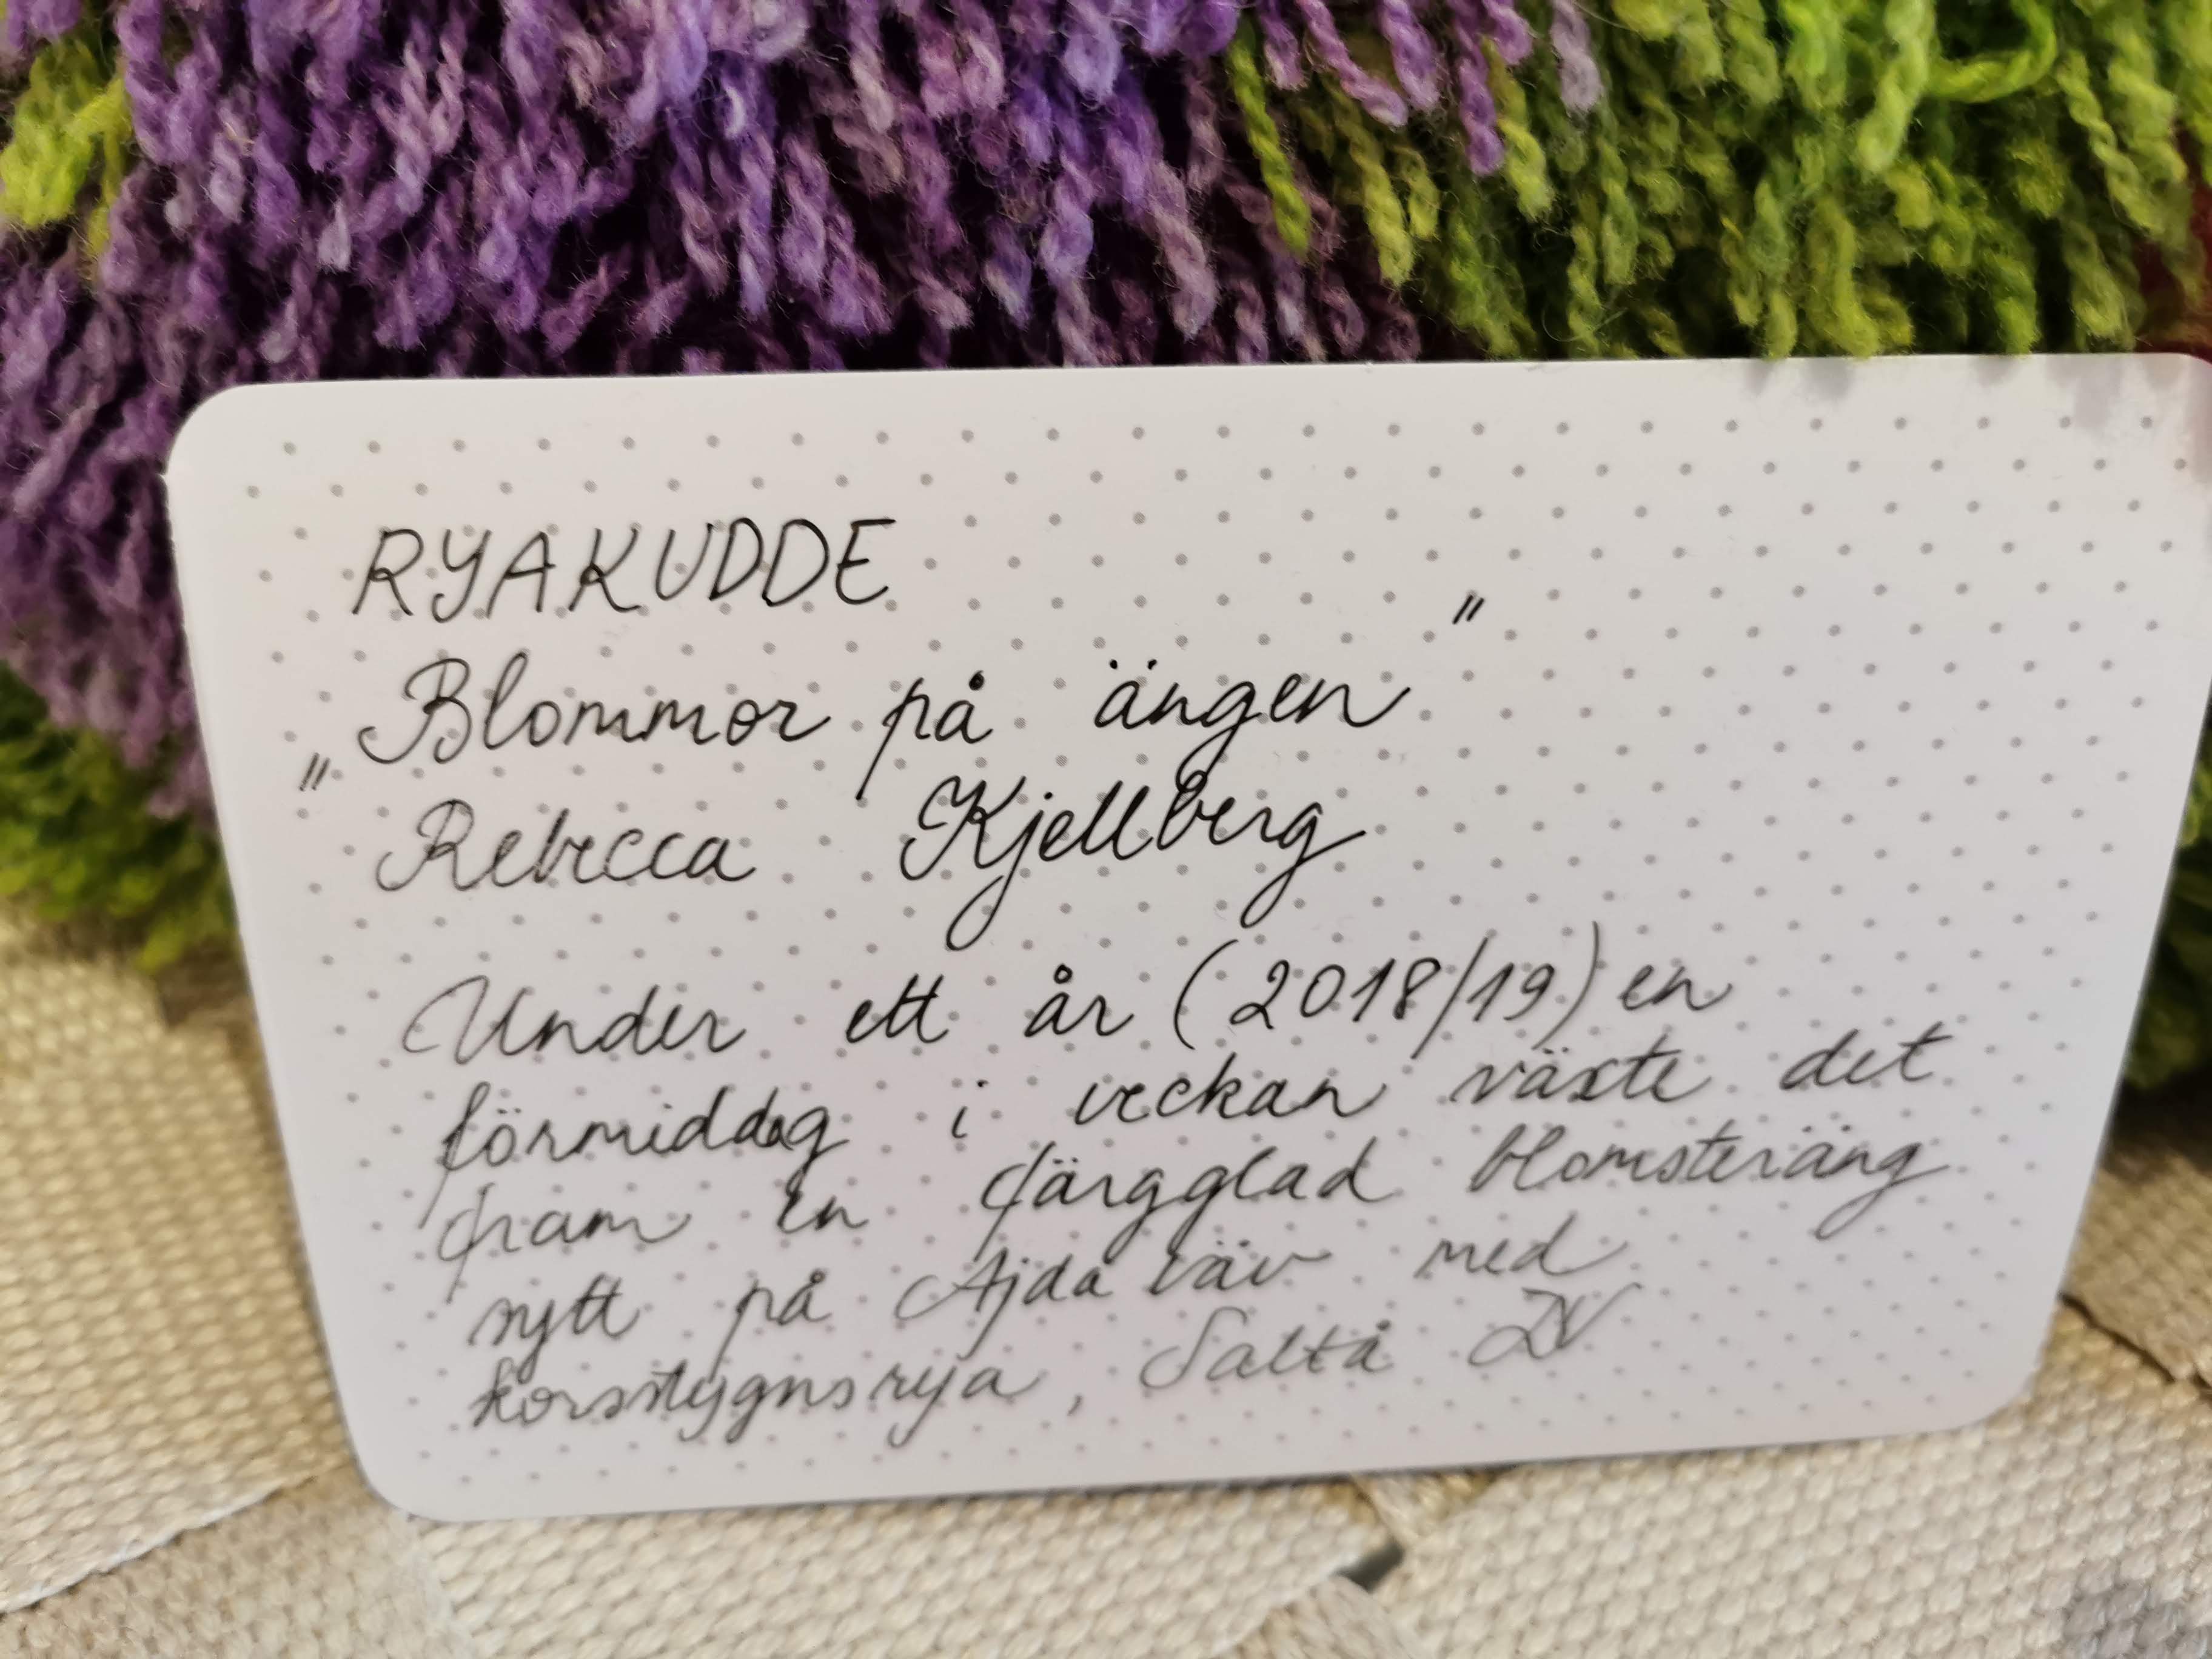 RYAKUDDE
„Blommor på ängen"
Rebecca Kjellberg
Under ett år (2018/19) en
förmiddag i veckan växte det
fram en färgglad blomsteräng
nytt på Ajda väv med
korsstygnsrya, Saltå